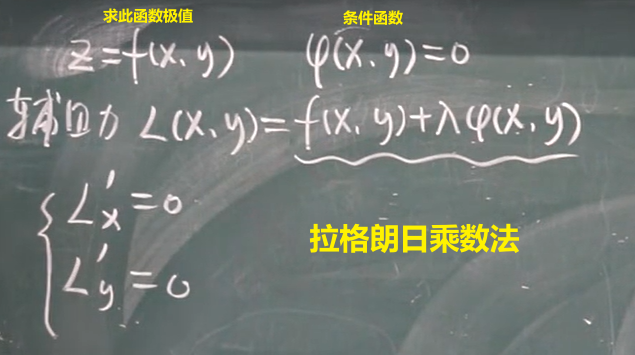 求此函数极值 条件函数
z=f(x、y) φ(x、y)=0
辅助 L(x、y)=f(x、y)+λφ(x、y)
L'x=0
拉格朗日乘数法
L'y=0